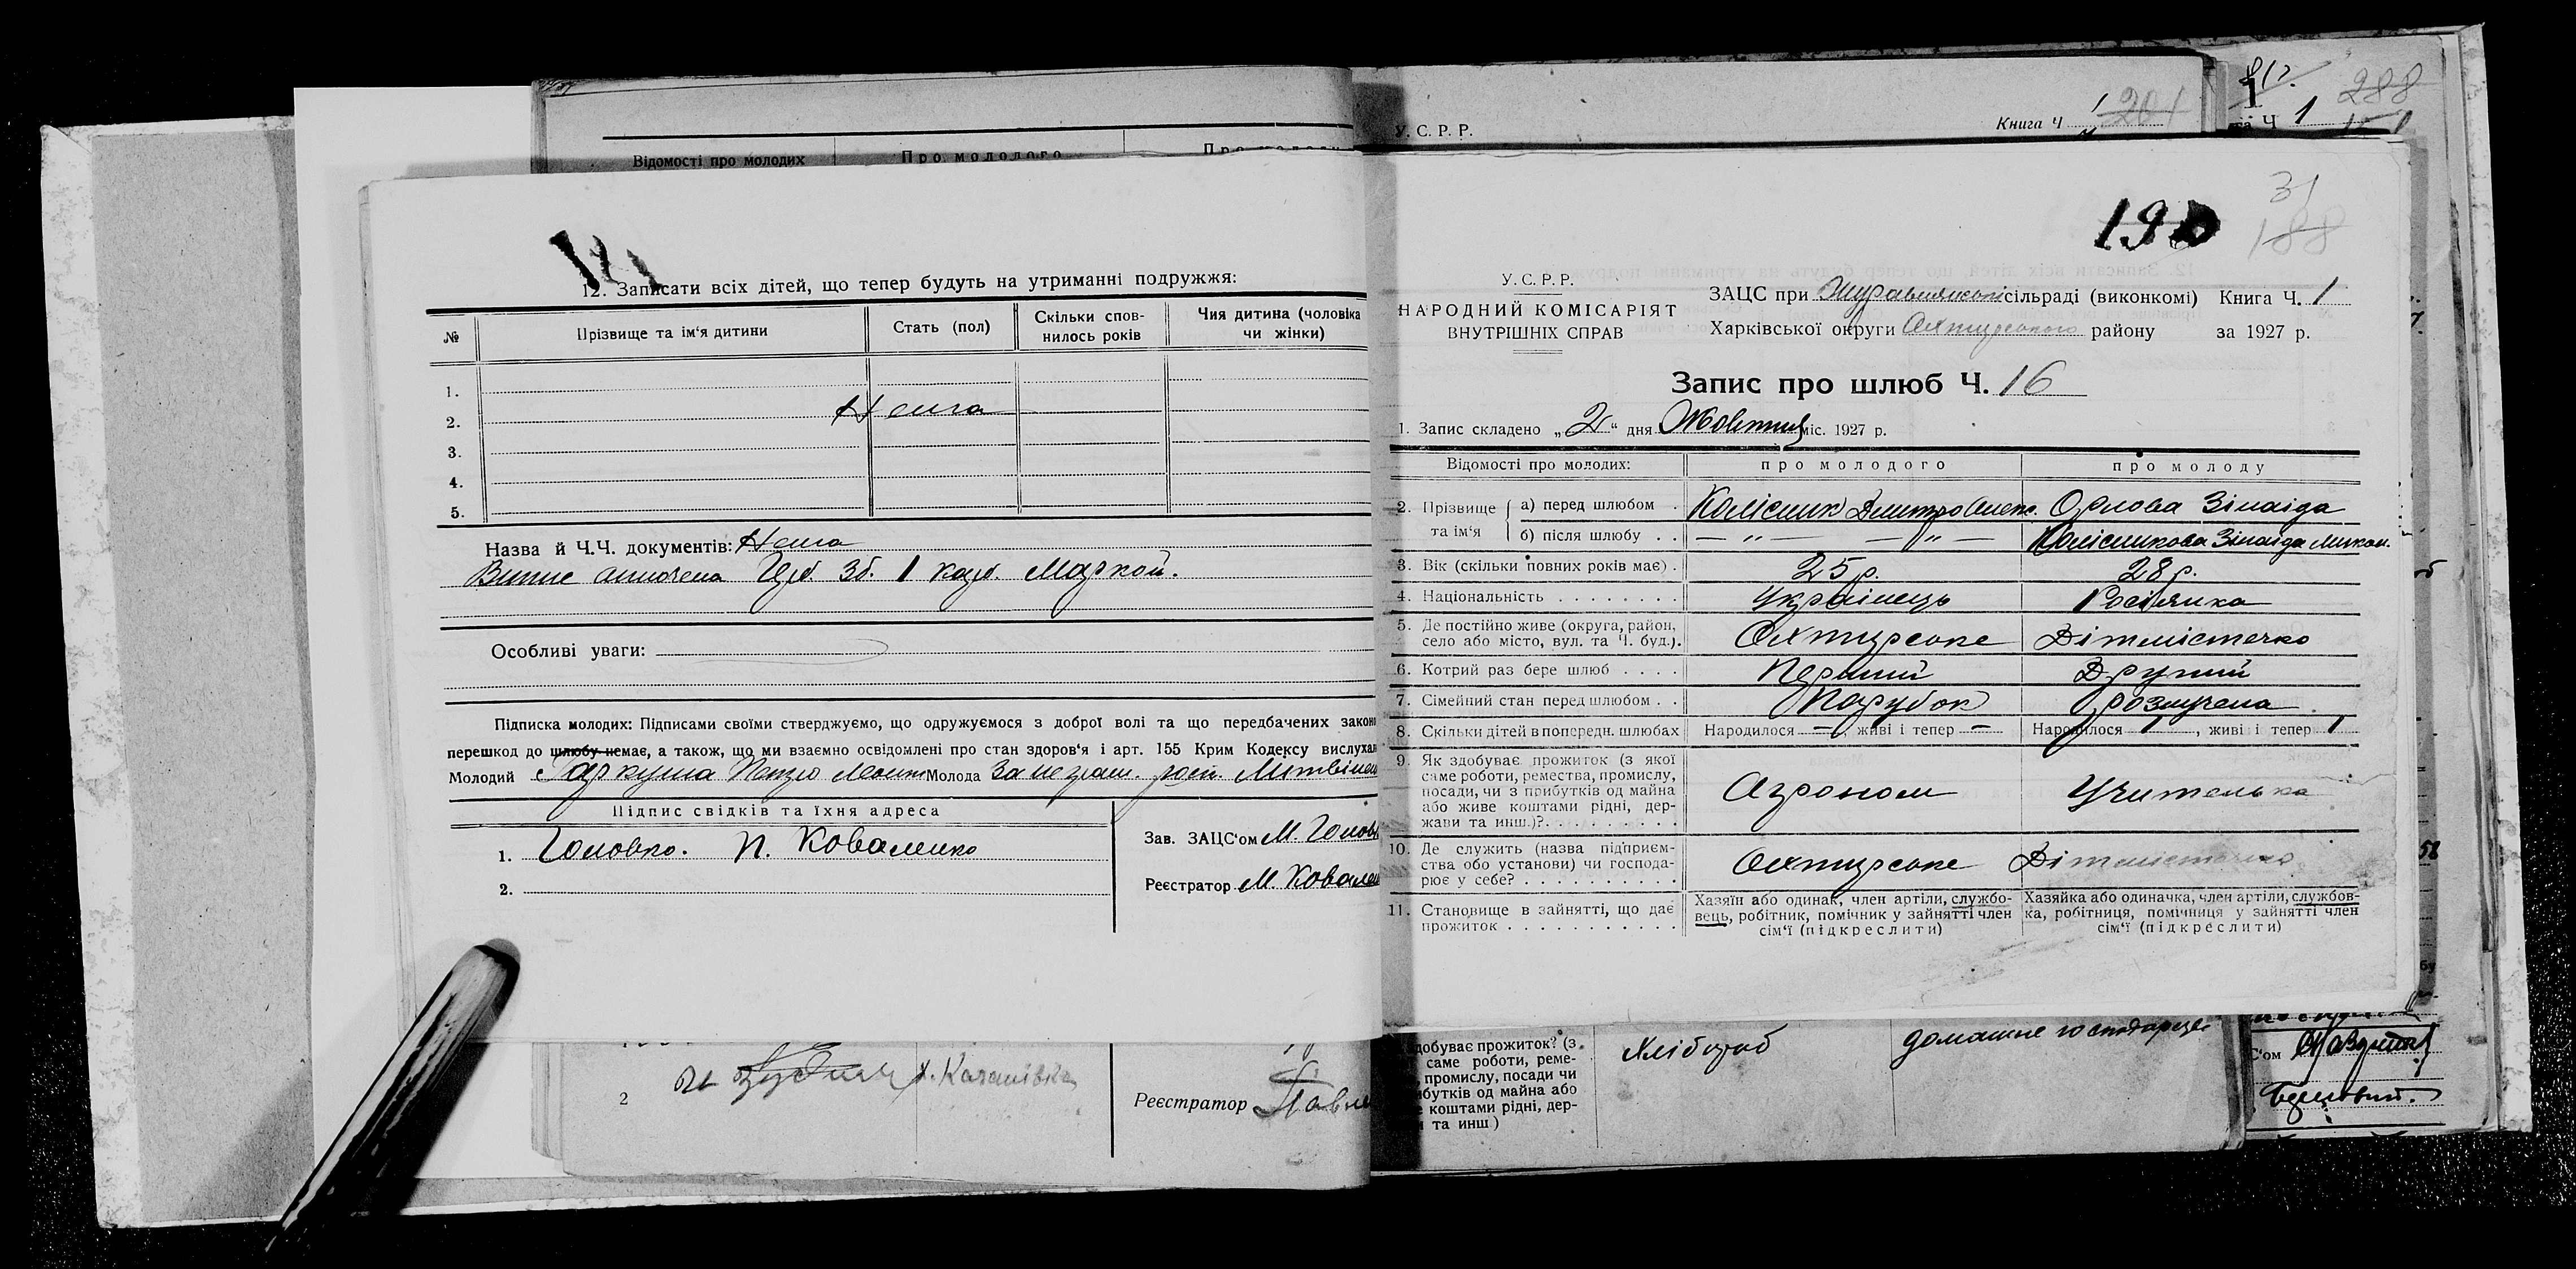 Відомості про молодих
Про молодого
У. С. Р. Р.
Книга Ч 1 201
288
Ч 1
12. Записати всіх дітей, що тепер будуть на утриманні подружжя:
№ Прізвище та ім'я дитини Стать (пол) Скільки спов-нилось років Чия дитина (чоловіка чи жінки)
1.
2. Нема
3.
4.
5.
Назва й Ч.Ч. документів: Нема
Випис оплочена Герб. Зб. 1 карб. Маркой.
Особливі уваги:
Підписка молодих: Підписами своїми стверджуємо, що одружуємося з доброї волі та що передбачених законо
перешкод до шлюбу немає, а також, що ми взаємно освідомлені про стан здоров'я і арт. 155 Крим Кодексу вислухал
Молодий Гаркуша Петро Молода За неграм. росп. Литвінен
Підпис свідків та їхня адреса
1. Головко. П. Коваленко
2.
Зав. ЗАЦС'ом М. Голов
Реєстратор М. Ковален
2 х. Качанівка
Реєстратор Павле
190
31
188
У.С.Р.Р.
НАРОДНИЙ КОМІСАРІЯТ
ВНУТРІШНІХ СПРАВ
ЗАЦС при сільраді (виконкомі) Книга Ч. 1
Харківської округи Охтирського району за 1927 р.
Запис про шлюб Ч. 16
1. Запис складено „2“ дня Жовтня міс. 1927 р.
Відомості про молодих: про молодого про молоду
2. Прізвище та ім'я
а) перед шлюбом . Колісник Дмитро Олекс. Орлова Зінаіда
б) після шлюбу . . — „ — — „ — Колісникова Зінаіда Микол.
3. Вік (скільки повних років має) . 25 р. 28 р.
4. Національність . . . . . . . . Українець Росіянка
5. Де постійно живе (округа, район,
село або місто, вул. та Ч. буд.). Охтирське Дітмістечко
6. Котрий раз бере шлюб . . . . Перший Другий
7. Сімейний стан перед шлюбом . . Парубок розлучена
8. Скільки дітей в попередн. шлюбах Народилося — , живі і тепер — Народилося 1 , живі і тепер 1
9. Як здобуває прожиток (з якої
саме роботи, ремества, промислу,
посади, чи з прибутків од майна
або живе коштами рідні, дер-
жави та инш.)?. . . . . . . . . Агроном Учителька
10. Де служить (назва підприєм-
ства обо установи) чи господа-
рює у себе? . . . . . . . . . . Охтирське Дітмістечко
11. Становище в зайнятті, що дає
прожиток . . . . . . . . . . .
Хазяїн або одинак, член артіли, службо-
вець, робітник, помічник у зайнятті член
сім'ї (підкреслити)
Хазяйка або одиначка, член артіли, службов-
ка, робітниця, помічниця у зайнятті член
сім'ї (підкреслити)
добуває прожиток? (з
саме роботи, реме-
промислу, посади чи
ибутків од майна або
коштами рідні, дер-
та инш)
Хлібороб
домашнє господарце
С'ом
58